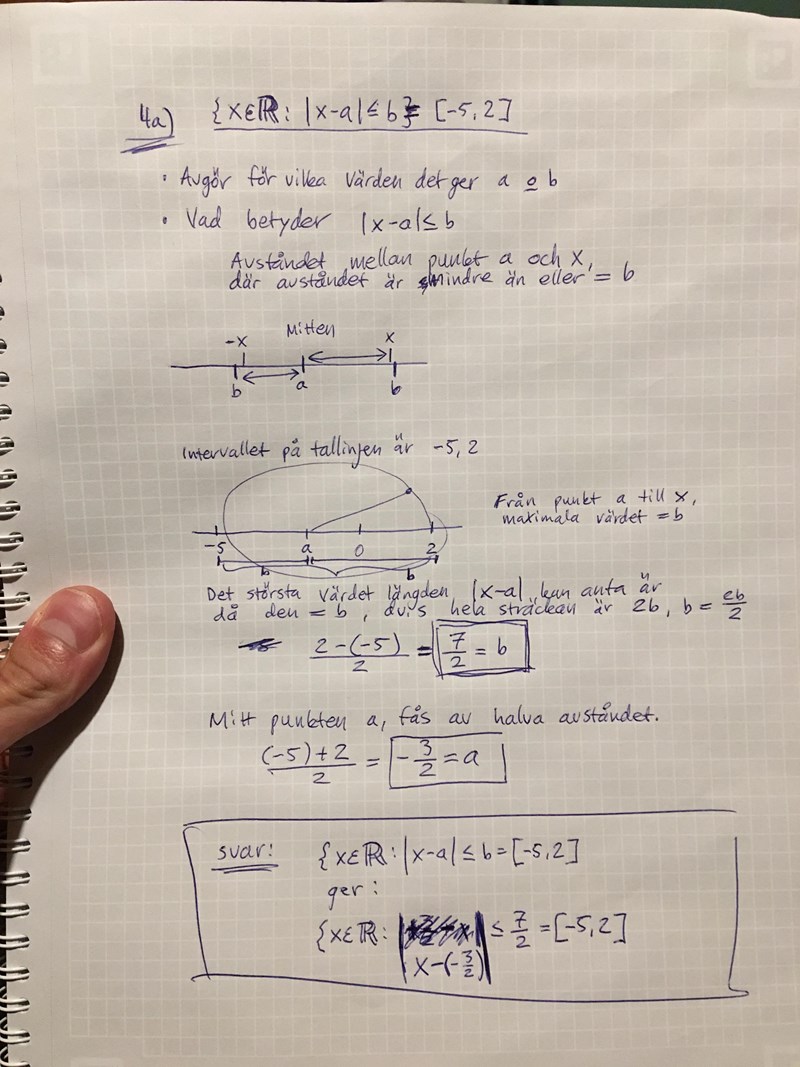 4a) {x∈ℝ: |x-a| ≤ b} = [-5, 2]
• Avgör för vilka värden det ger a o b
• Vad betyder |x-a| ≤ b
Avståndet mellan punkt a och x,
där avståndet är mindre än eller = b
Mitten
-x x
b a b
Intervallet på tallinjen är -5, 2
Från punkt a till x,
maximala värdet = b
-5 a 0 2
b b
Det största värdet längden |x-a| kan anta är
då den = b, dvs hela sträckan är 2b, b = 2b/2
2-(-5)/2 = 7/2 = b
Mitt punkten a, fås av halva avståndet.
(-5)+2/2 = -3/2 = a
svar: {x∈ℝ: |x-a| ≤ b = [-5, 2]
ger:
{x∈ℝ: |x-(-3/2)| ≤ 7/2 = [-5, 2]